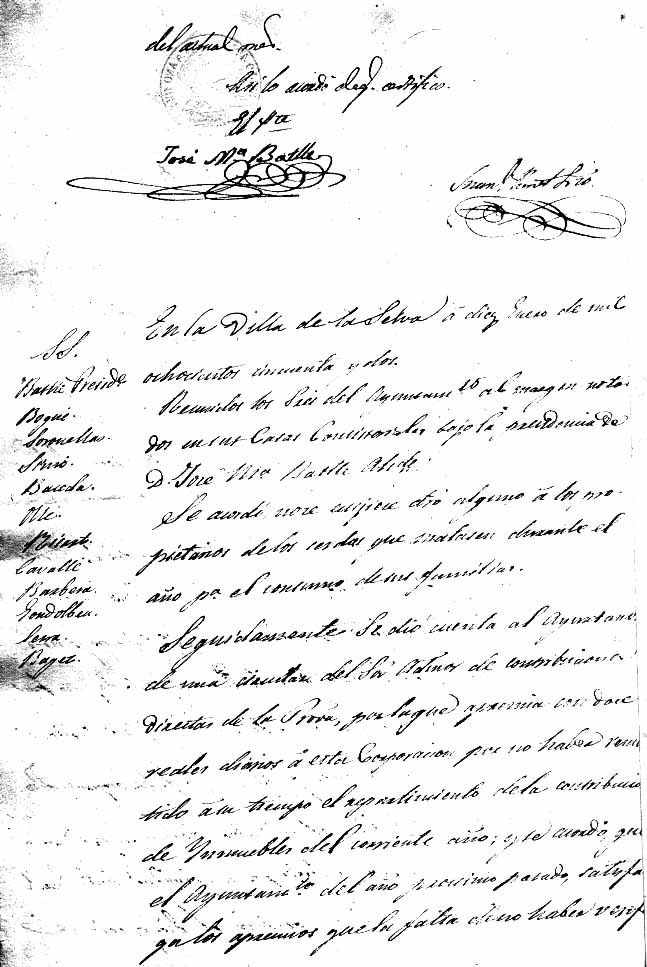 del actual mes.
Asi lo acordó de q.e certifico.
El Pte
José Ma Batlle
SS.
Batlle Preside
Boqué.
Soronellas.
Baceda.
Olle.
Cavallé
Barberá.
Serra
Bages.
En la Villa de la Selva á diez Enero de mil
ochocientos cincuenta y dos.
Reunidos los Sres del Ayuntamto al margen nota-
dos en sus Casas Consistoriales bajo la presidencia de
D. José Ma Batlle Alcde
Se acordó no se exijiere dro alguno á los pro-
pietarios de los cerdos que matasen durante el
año pa el consumo de sus familias.
Seguidamente se dió cuenta al Ayuntam
de una circular del Sor Admor de contribuciones
directas de la Prova, por la que apremia con doce
reales diarios á esta Corporacion por no haber remi-
tido á su tiempo el repartimiento de la contribucio
de Inmuebles del corriente año; y se acordó, que
el Ayuntamto del año procsimo pasado, satisfa-
ga los apremios que la falta de no haber verif